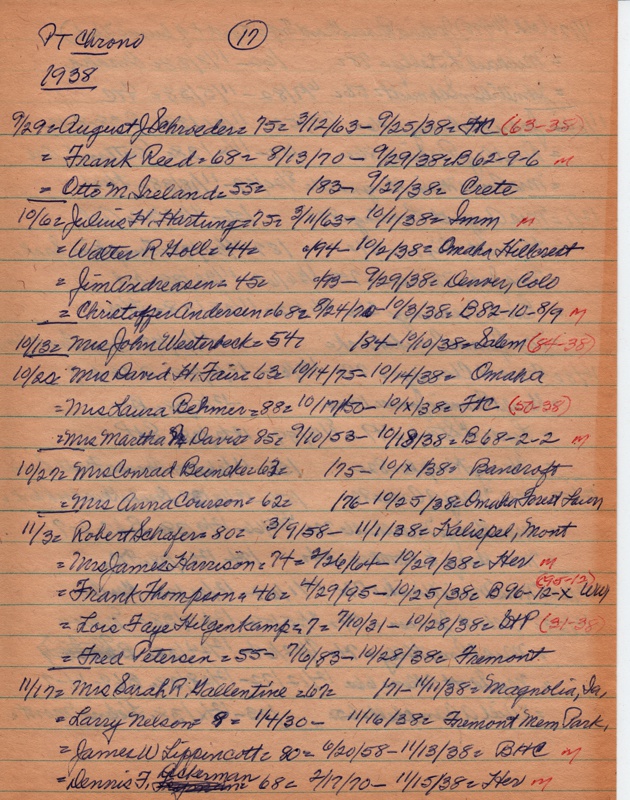 PT Chrono (17)
1938
9/29= August J Schroeder= 75= 3/12/63- 9/25/38= FHC (63-38)
= Frank Reed= 68= 8/13/70- 9/29/38= B62-9-6 m
= Otto M. Ireland= 55= /83- 9/27/38= Crete
10/6= Julius H. Hartung= 75= 3/11/63- 10/1/38= Imm m
= Walter R Goll= 44= /94- 10/2/38= Omaha Hillcrest
= Jim Andreasen= 45= /93- 9/29/38= Denver, Colo
= Christoffer Andersen= 68= 8/24/70- 10/3/38= B82-10-8/9 m
10/13= Mrs John Westerbeck= 54= /84- 10/10/38= Salem (84-38)
10/20= Mrs David H. Fair= 63= 10/14/75- 10/14/38= Omaha
= Mrs Laura Behmer= 88= 10/17/50- 10/x/38= FHC (50-38)
= Mrs Martha Davis= 85= 9/10/53- 10/18/38= B68-2-2 m
10/27= Mrs Conrad Beindee= 63= /75- 10/x/38= Bancroft
= Mrs Anna Courson= 62= /76- 10/25/38= Omaha Forest Lawn
11/3= Robert Schafer= 80= 3/9/58- 11/1/38= Kalispel, Mont
= Mrs James Harrison= 74= 2/26/64- 10/29/38= Her m
= Frank Thompson= 46= 4/29/95- 10/25/38= B96-12-X WW1 (95-12)
= Lois Faye Hilgenkamp= 7= 7/10/31- 10/28/38= (31-38)
= Fred Petersen= 55- 7/6/83- 10/28/38= Fremont
11/17= Mrs Sarah R. Gallentine= 67= /71- 11/11/38= Magnolia, Ia.
= Larry Nelson= 1/4/30- 11/16/38= Fremont Mem Park,
= James W Lippincott= 80= 6/20/58- 11/13/38= BHC m
= Dennis F. Ackerman 68= 2/17/70- 11/15/38= Her m